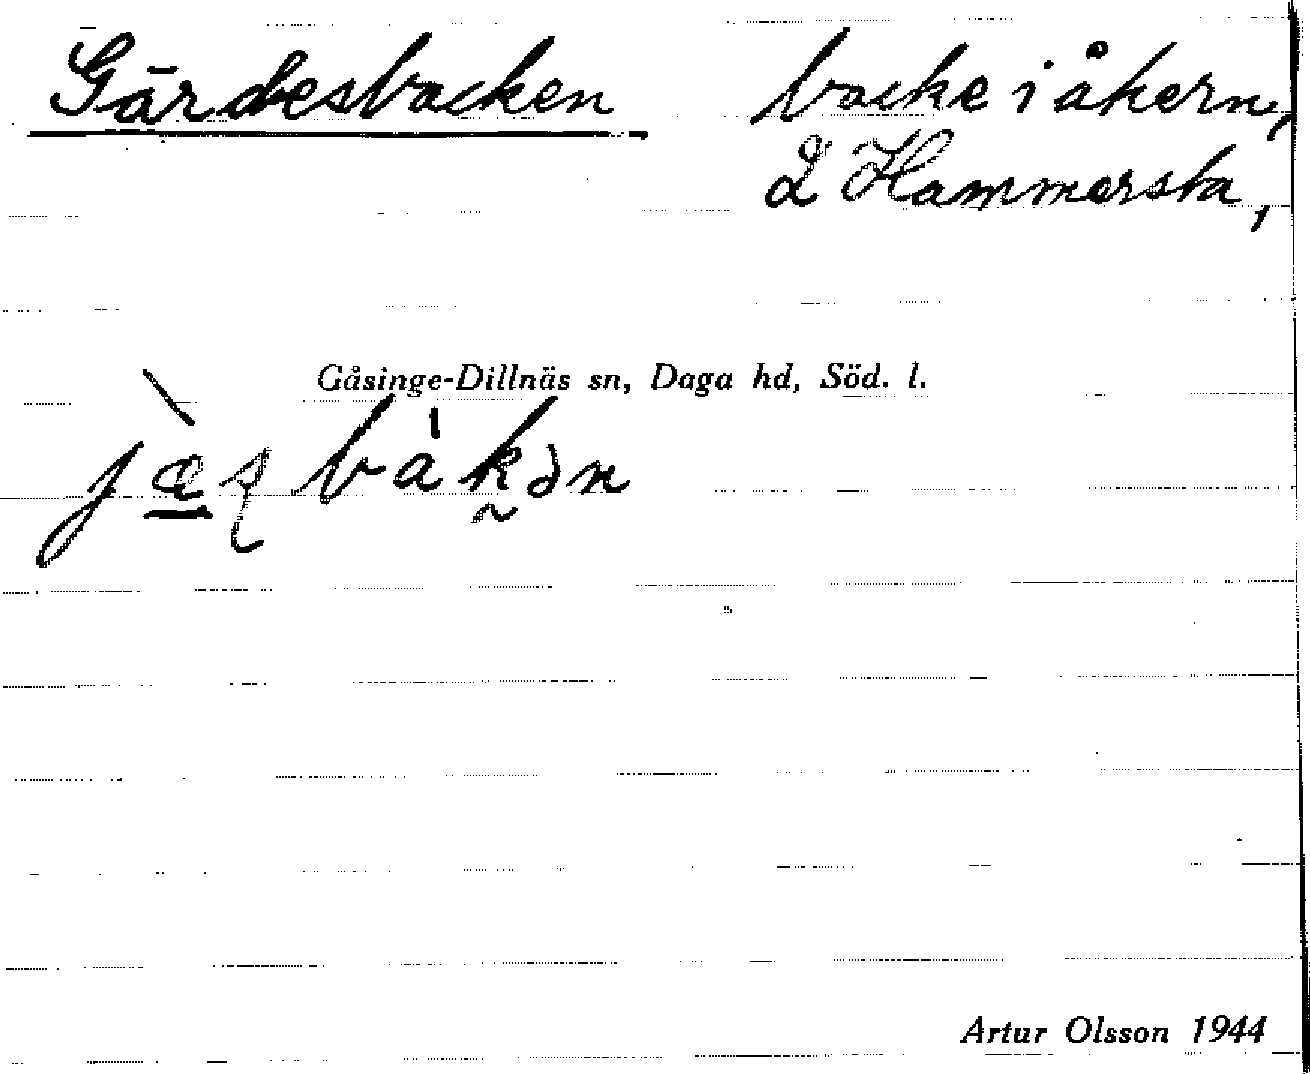 Gärdesbacken backe i åkern,
2 Hammersta,
Gåsinge-Dillnäs sn, Daga hd, Söd. l.
Artur Olsson 1944